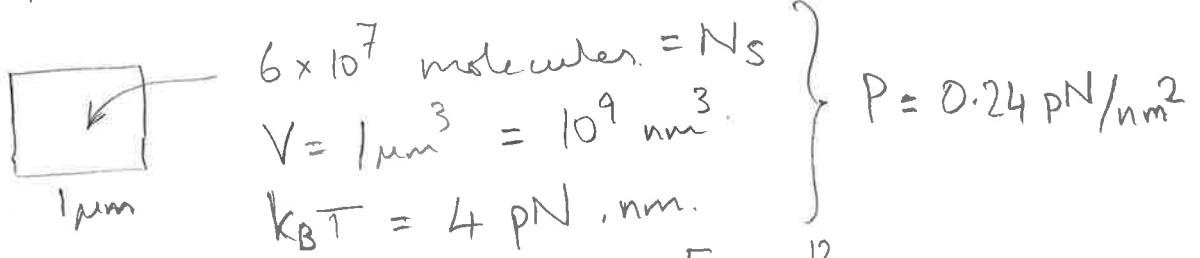 6 × 10⁷ molecules. = Nₛ
V = 1 μm³ = 10⁹ nm³.
k_BT = 4 pN . nm.
P = 0.24 pN/nm²
1 μm
12